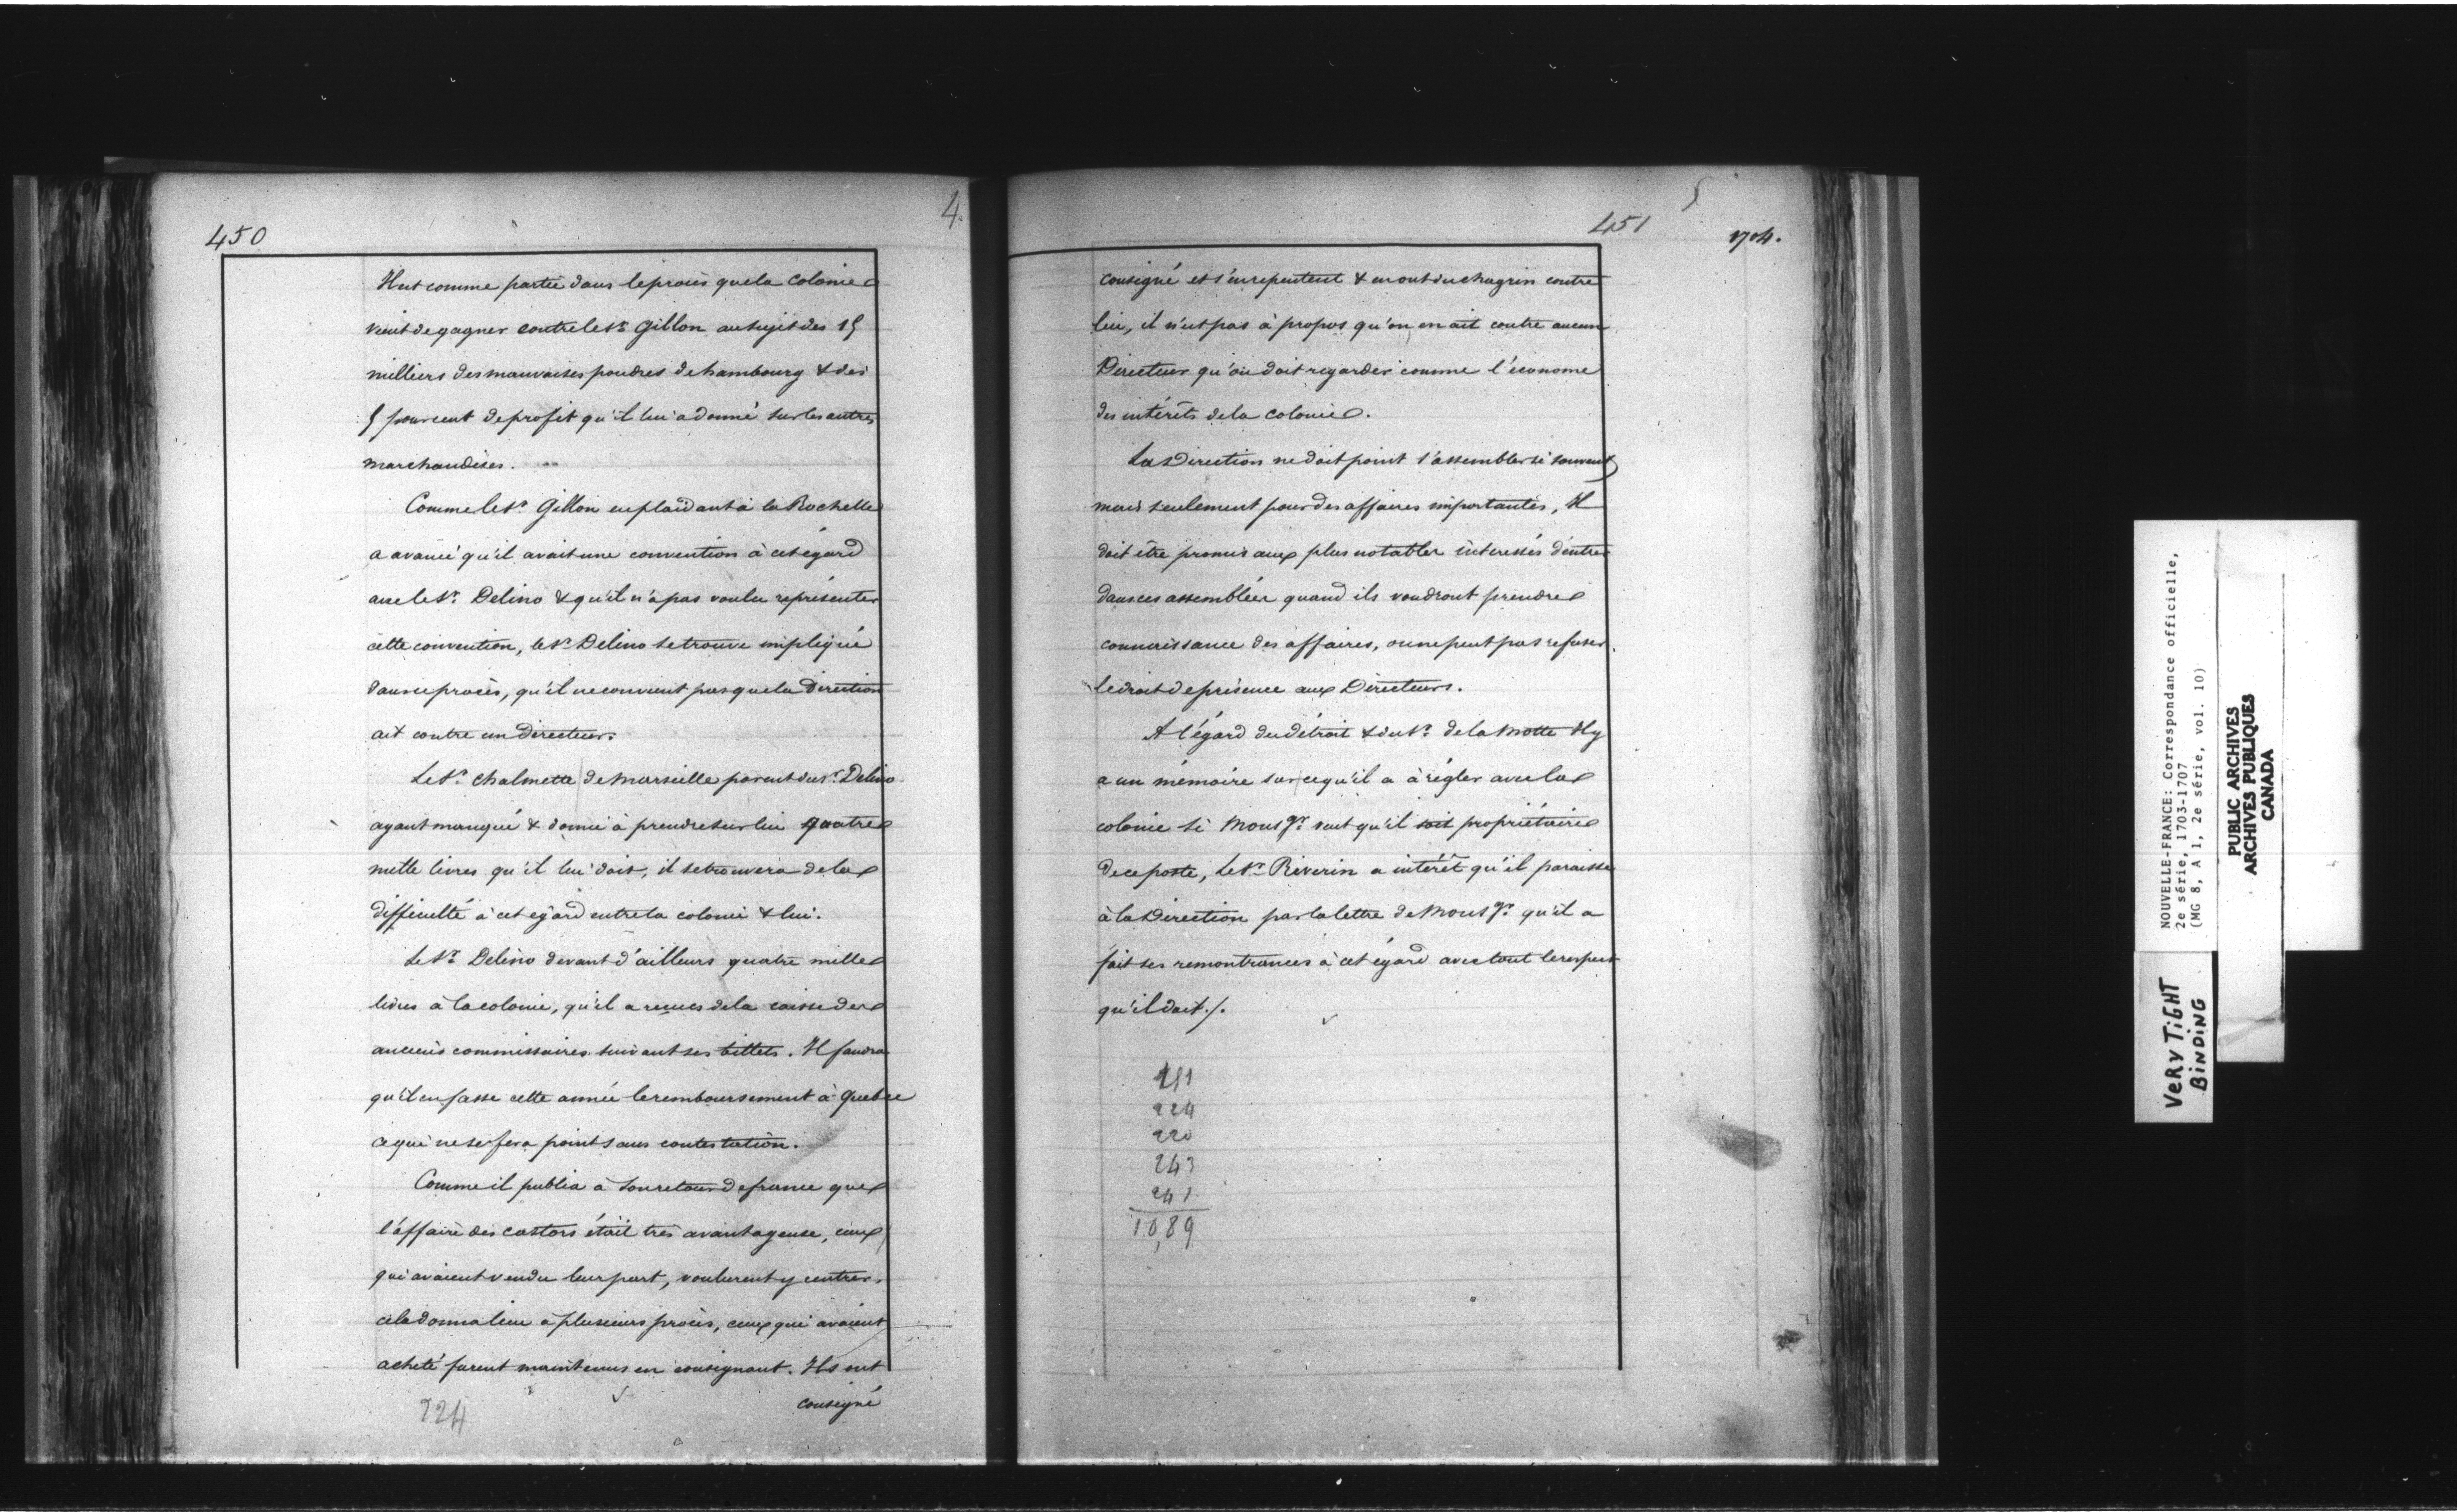 450
4.
Il est comme partie dans le procès que la Colonie
vient de gagner contre le Sr. Gillon au sujet des 15
milliers des mauvaises poudres de hambourg & des
5 pour cent de profit qu'il lui a donné sur les autres
marchandises.
Comme le Sr. Gillon en plaidant à la Rochelle
a avancé qu'il avait une convention à cet égard
avec le Sr. Delino & qu'il n'a pas voulu représenter
cette convention, le Sr. Delino se trouve impliqué
dans ce procès, qu'il ne convient pas que la Direction
ait contre un Directeur.
Le Sr. Chalmette de Marseille parent du Sr. Delino
ayant manqué & donné à prendre sur lui quatre
mille livres qu'il lui doit, il se trouvera de la
difficulté à cet égard entre la colonie & lui.
Le Sr. Delino devant d'ailleurs quatre mille
livres à la colonie, qu'il a reçues de la caisse des
anciens commissaires suivant ses billets. Il faudra
qu'il en fasse cette année le remboursement à Quebec
ce qui ne se fera point sans contestation.
Comme il publia à son retour de france que
l'affaire des castors était très avantageuse, ceux
qui avaient vendu leur part, voulurent y rentrer,
cela donna lieu à plusieurs procès, ceux qui avaient
acheté furent maintenus en consignant. Ils ont
consigné
224
451
5
1704.
consigné et s'en repentent & en ont du chagrin contre
lui, il n'est pas à propos qu'on en ait contre aucun
Directeur qu'on doit regarder comme l'économe
des intérêts de la colonie.
La Direction ne doit point s'assembler si souvent
mais seulement pour des affaires importantes, Il
doit être promis aux plus notables intéressés d'entrer
dans ces assemblées quand ils voudront prendre
connaissance des affaires, on ne peut pas refuser
le droit de présence aux Directeurs.
A l'égard du détroit & du Sr. de la Motte Il y
a un mémoire sur ce qu'il a à régler avec la
colonie si Monsgr. veut qu'il soit propriétaire
de ce poste, Le Sr. Riverin a intérêt qu'il paraisse
à la Direction par la lettre de Monsgr. qu'il a
fait ses remontrances à cet égard avec tout le respect
qu'il doit./.
224
220
243
241
10,89
NOUVELLE-FRANCE: Correspondance officielle,
2e série, 1703-1707
(MG 8, A 1, 2e série, vol. 10)
PUBLIC ARCHIVES
ARCHIVES PUBLIQUES
CANADA
VERY TIGHT
BINDING